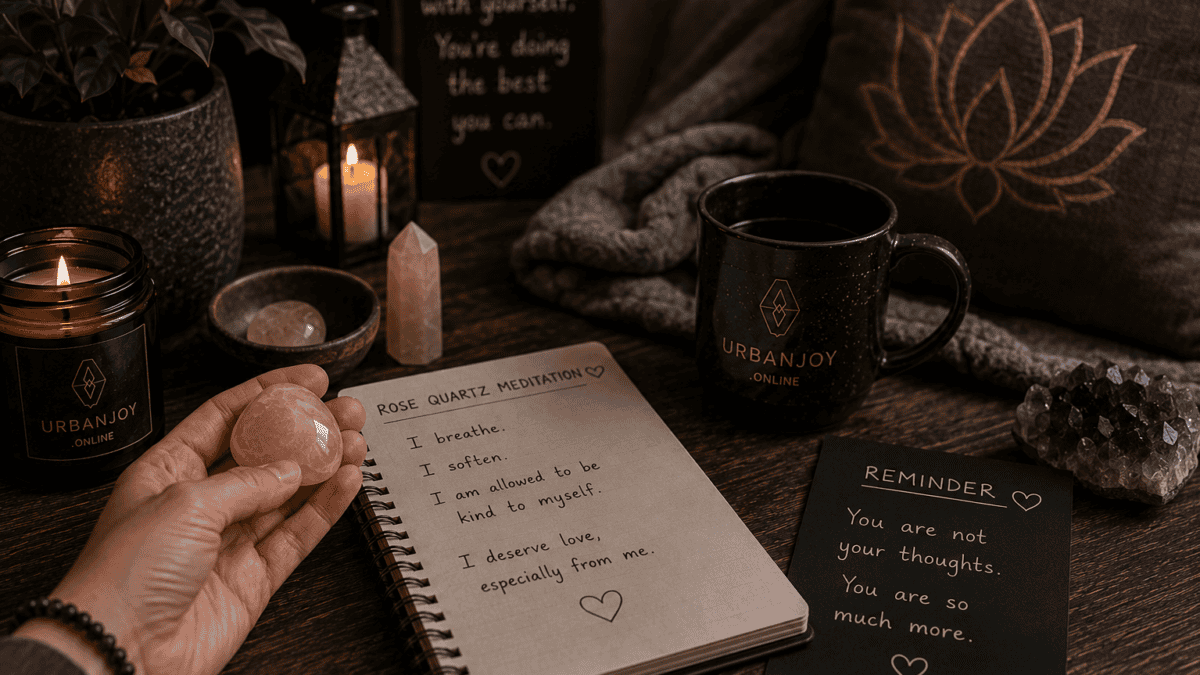 with yourself.
You're doing
the best
you can.
URBANJOY
.ONLINE
ROSE QUARTZ MEDITATION
I breathe.
I soften.
I am allowed to be
kind to myself.
I deserve love,
especially from me.
URBANJOY
.ONLINE
REMINDER
You are not
your thoughts.
You are so
much more.